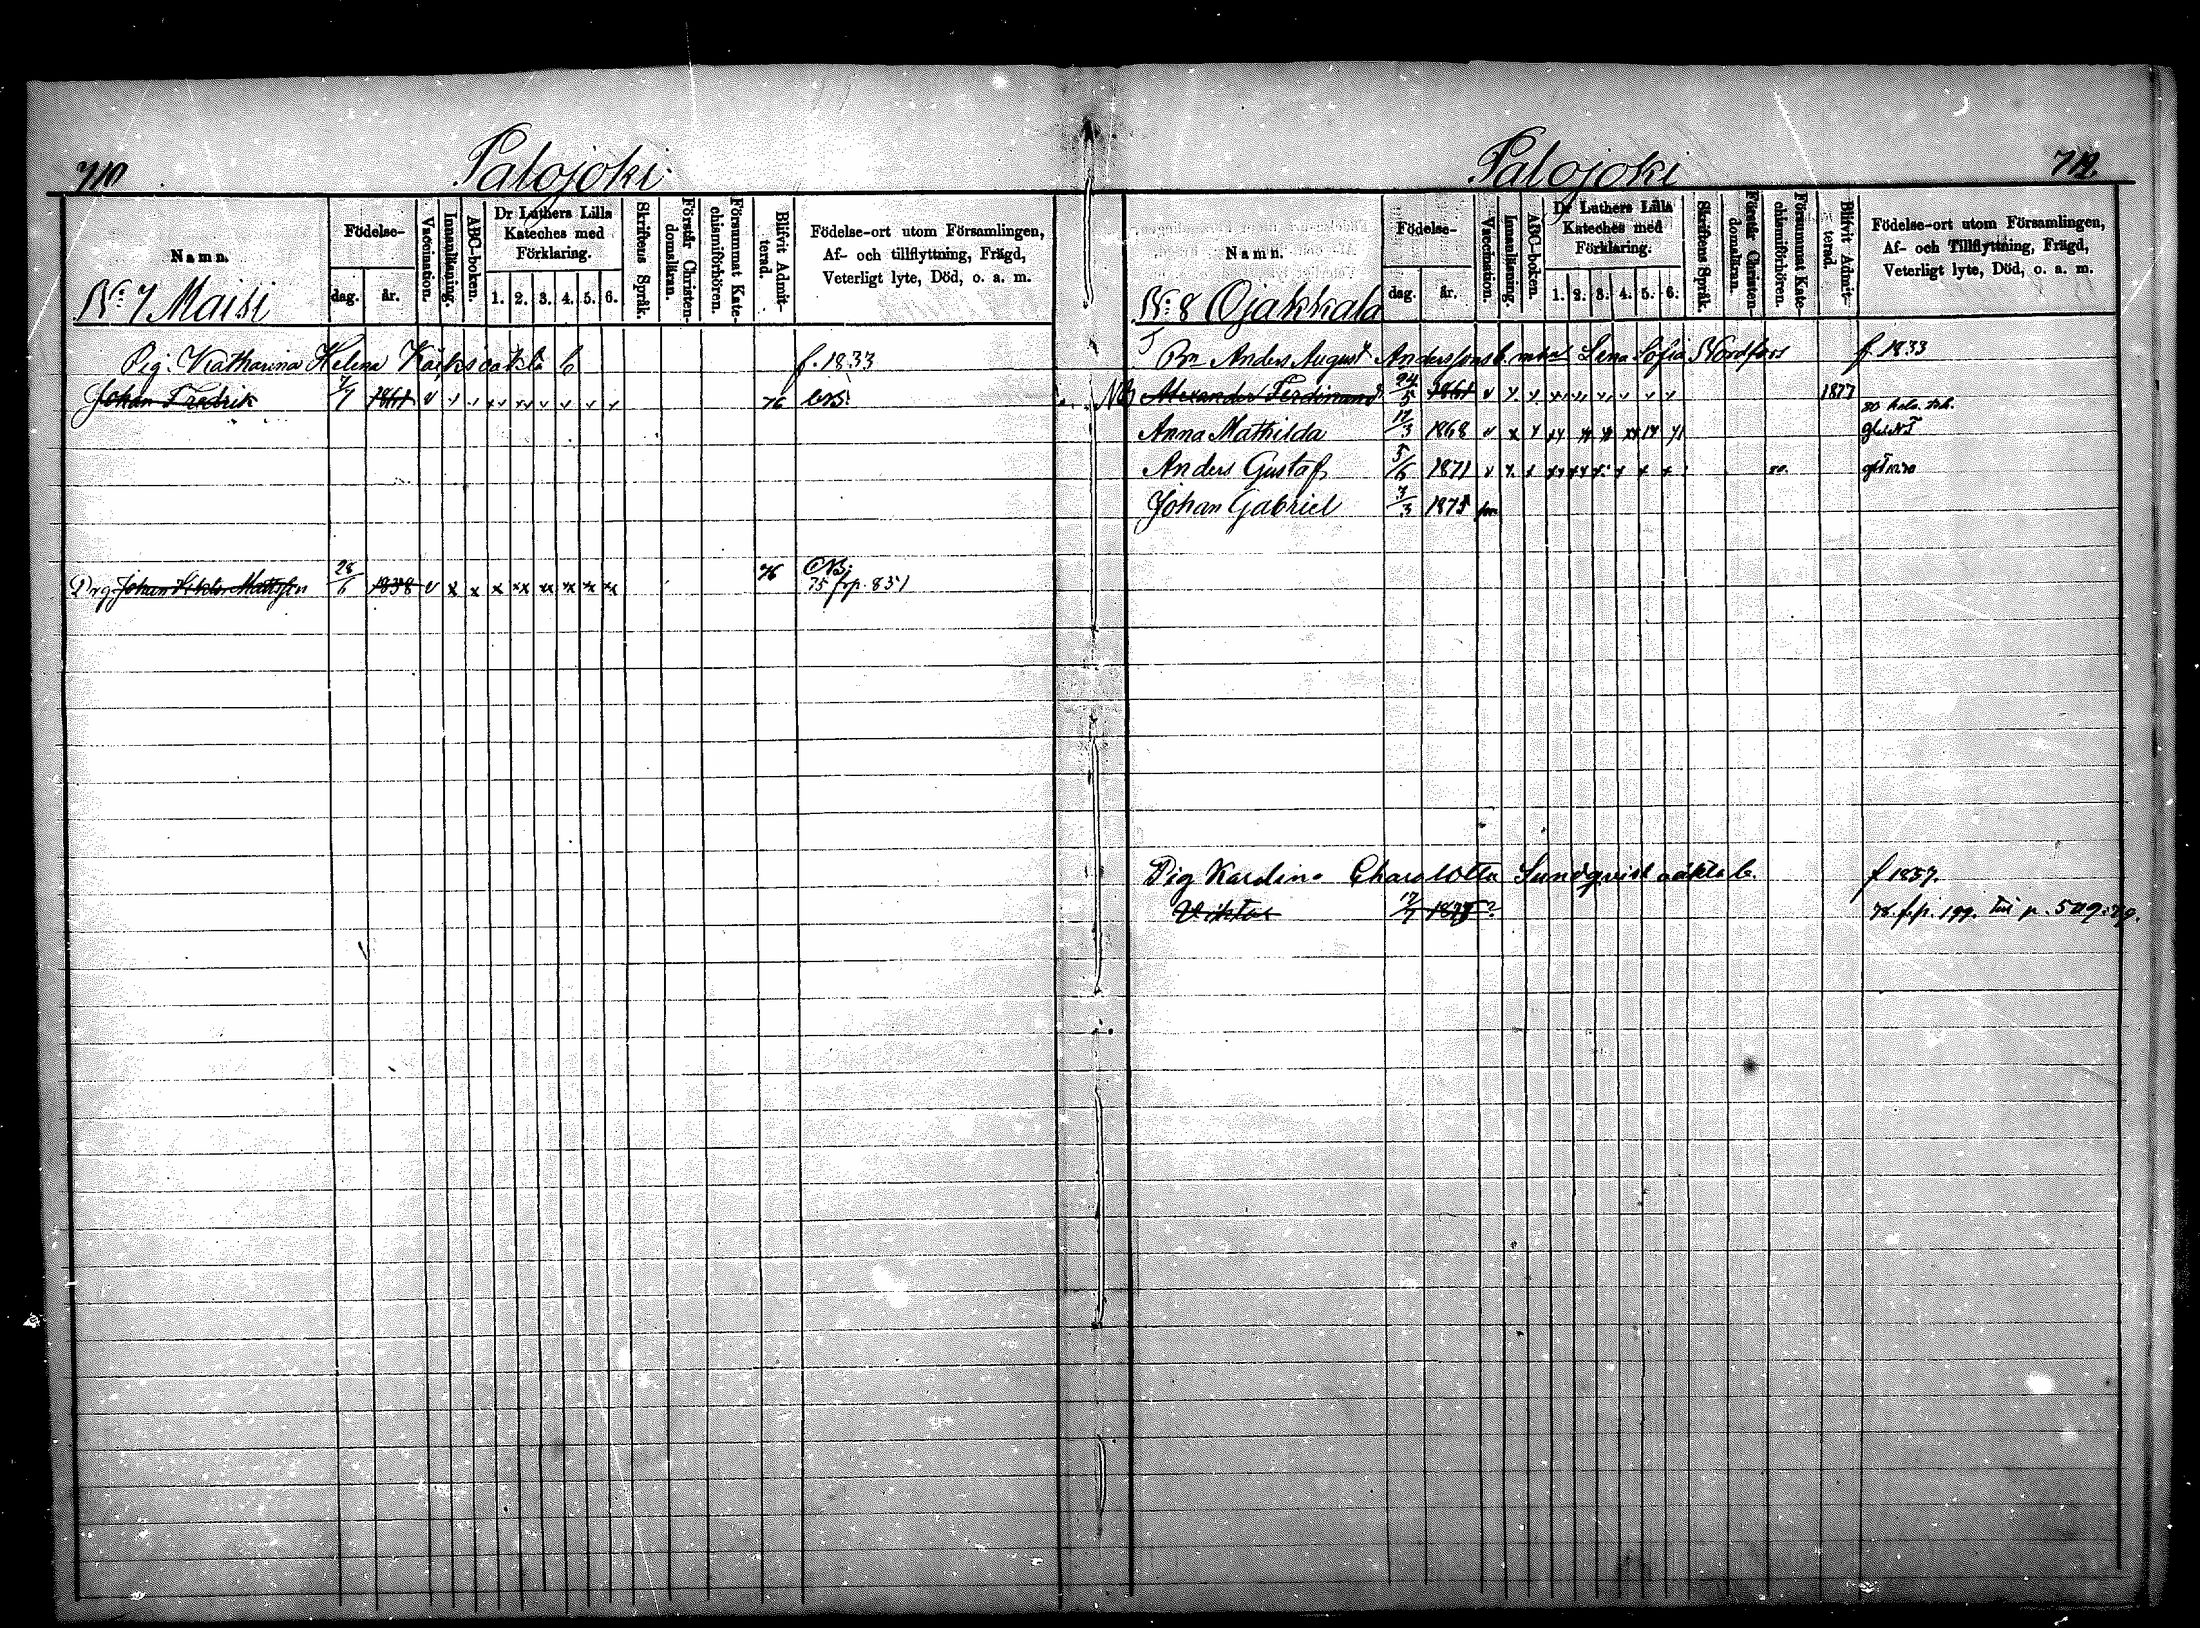 710
Palojoki
Namn.
Födelse-
dag.
år.
Vaccination.
Innanläsning.
ABC-boken.
Dr Luthers Lilla Kateches med Förklaring.
1. 2. 3. 4. 5. 6.
Skriftens Språk.
Förstår Christendomsläran.
Försummat Katechismiförhören.
Blifvit Admitterad.
Födelse-ort utom Församlingen,
Af- och tillflyttning, Frägd,
Veterligt lyte, Död, o. a. m.
No 7 Maisi
Pig. Katharina Helena oäkta b f. 1833
Johan Fredrik 7/7 1861 v 76
Drg Johan Viktor Mattsson 28/6 1858 v x x x xx xx xx xx xx 76
75 frp. 851
Palojoki
712.
Namn.
Födelse-
dag.
år.
Vaccination.
Innanläsning.
ABC-boken.
Dr Luthers Lilla Kateches med Förklaring.
1. 2. 3. 4. 5. 6.
Skriftens Språk.
Förstår Christendomsläran.
Försummat Katechismiförhören.
Blifvit Admitterad.
Födelse-ort utom Församlingen,
Af- och Tillflyttning, Frägd,
Veterligt lyte, Död, o. a. m.
No 8 Ojakkala
Bn Anders August Anderssons b. m. Lena Sofia Nordfors f. 1833
Alexander Ferdinand 24/5 1861 v 1877
Anna Mathilda 17/3 1868 v
Anders Gustaf 5/6 1871 v
Johan Gabriel 3/3 1875
Pig Karolina Charalotta Sundqvist oäkta b. f 1837.
Viktor 17/7 187
78. f. p. 199. till p. 509. 79.